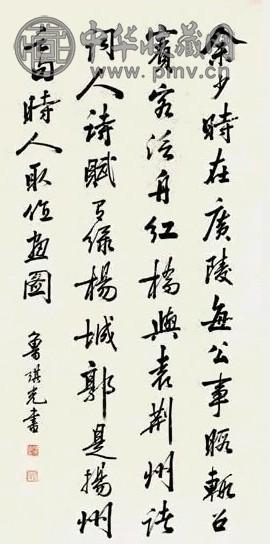 中华收藏网
www.pmv.cn
余少時在廣陵每公事暇輒召
賓客泛舟紅橋與袁荆州諸
同人詩賦有綠楊城郭是揚州
之句時人取作画圖
魯琪光書